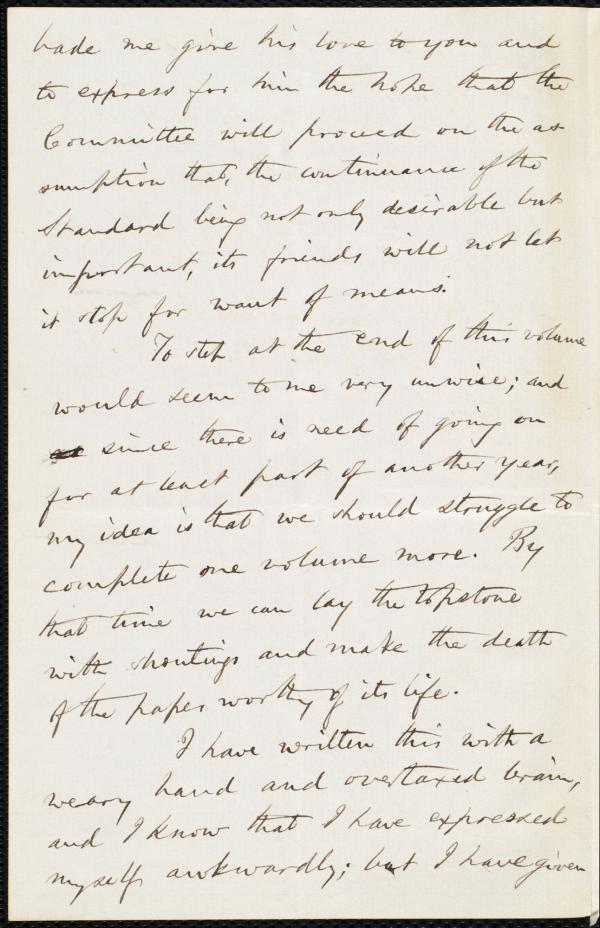 bade me give his love to you and
to express for him the hope that the
Committee will proceed on the as
sumption that, the continuance of the
Standard being not only desirable but
important, its friends will not let
it stop for want of means.
To stop at the end of this volume
would seem to me very unwise; and
since there is need of going on
for at least part of another year,
my idea is that we should struggle to
complete one volume more. By
that time we can lay the topstone
with shoutings and make the death
of the paper worthy of its life.
I have written this with a
weary hand and overtaxed brain,
and I know that I have expressed
myself awkwardly; but I have given